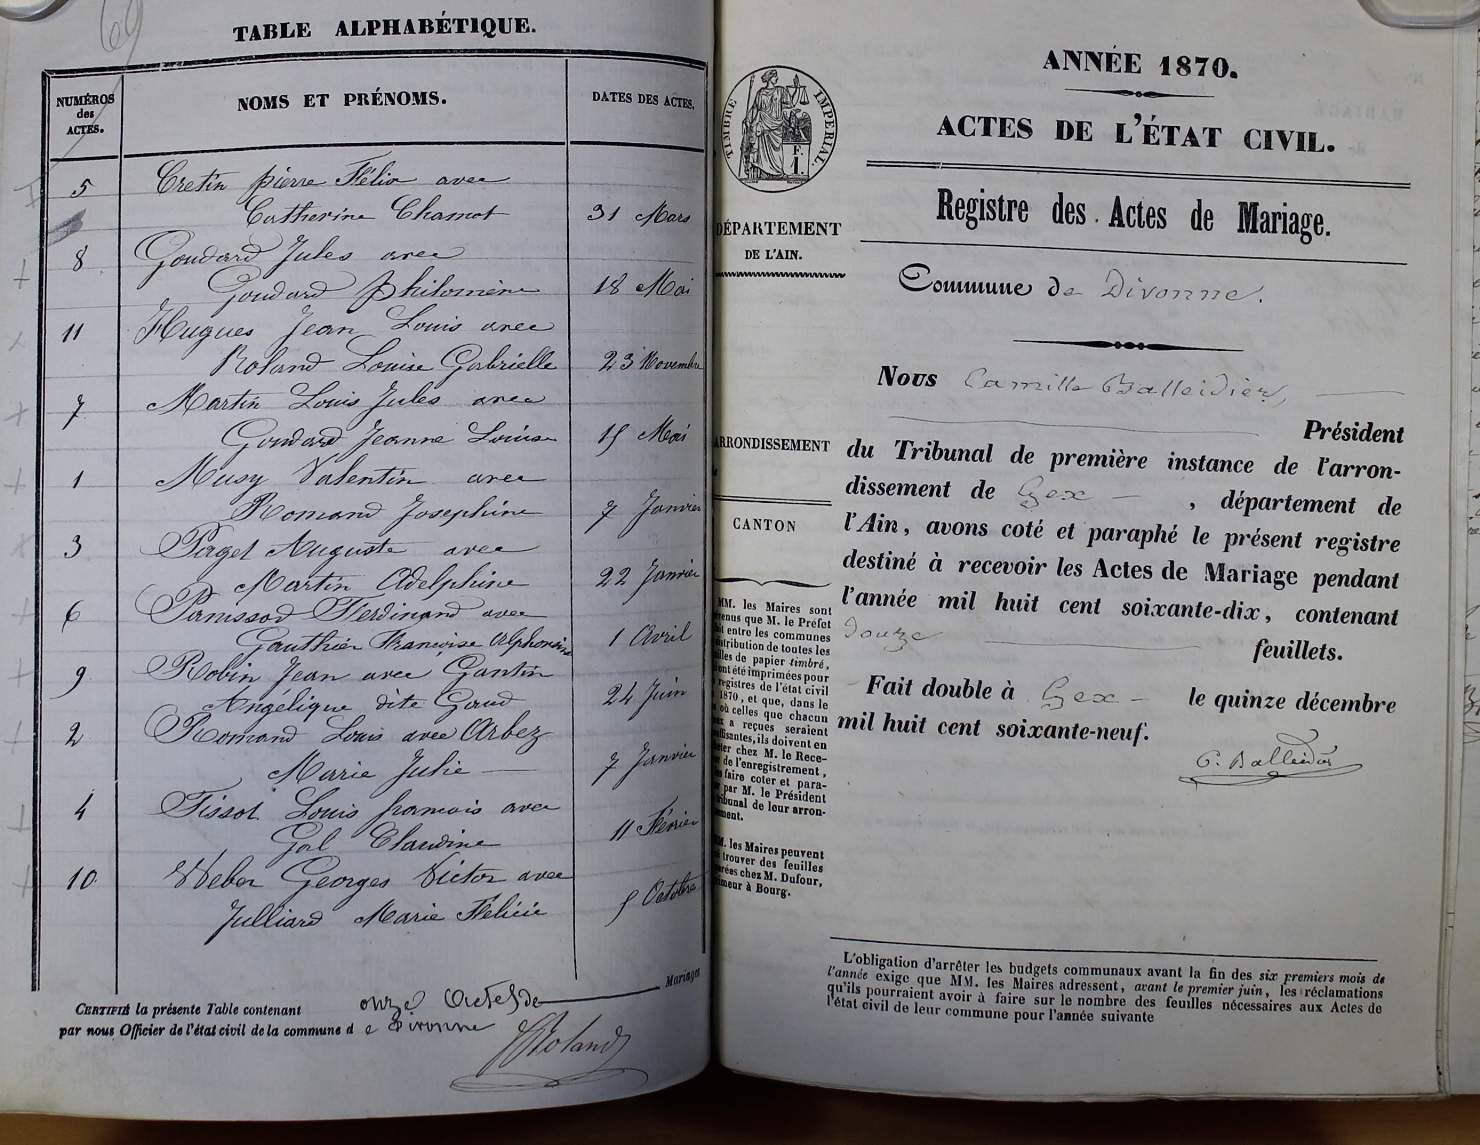 69
TABLE ALPHABÉTIQUE.
NUMÉROS
des
ACTES.
NOMS ET PRÉNOMS.
DATES DES ACTES.
5 Cretin pierre Félix avec
Catherine Chamot 31 Mars
8 Goudard Jules avec
Goudard philomène 18 Mai
11 Hugues Jean Louis avec
Roland Louise Gabrielle 23 Novembre
7 Martin Louis Jules avec
Goudard Jeanne Louise 15 Mai
1 Musy Valentin avec
Romand Josephine 7 Janvier
3 Paget Auguste avec
Martin Adelphine 22 Janvier
6 Panissod Ferdinand avec
Gauthier Françoise Alphonsine 1 Avril
9 Robin Jean avec Gantin
Angélique dite Gaud 24 Juin
2 Romand Louis avec Arbez
Marie Julie — 7 Janvier
4 Tissot Louis françois avec
Gol Claudine 11 Février
10 Weber Georges Victor avec
Julliard Marie Félicie 5 Octobre
CERTIFIÉ la présente Table contenant onze Actes de Mariages
par nous Officier de l'état civil de la commune de Divonne
Roland
TIMBRE IMPERIAL.
F.
1.
DÉPARTEMENT
DE L'AIN.
ARRONDISSEMENT
CANTON
MM. les Maires sont
que M. le Préfet
entre les communes
de toutes les
de papier timbré,
été imprimées pour
registres de l'état civil
1870, et que, dans le
où celles que chacun
a reçues seraient
ils doivent en
chez M. le Rece-
de l'enregistrement,
faire coter et para-
par M. le Président
de leur arron-
les Maires peuvent
trouver des feuilles
chez M. Dufour,
à Bourg.
ANNÉE 1870.
ACTES DE L'ÉTAT CIVIL.
Registre des Actes de Mariage.
Commune de Divonne.
Nous Camille Balleidier,
Président
du Tribunal de première instance de l'arron-
dissement de Gex — , département de
l'Ain, avons coté et paraphé le présent registre
destiné à recevoir les Actes de Mariage pendant
l'année mil huit cent soixante-dix, contenant
Douze feuillets.
Fait double à Gex — le quinze décembre
mil huit cent soixante-neuf.
C. Balleidier
L'obligation d'arrêter les budgets communaux avant la fin des six premiers mois de
l'année exige que MM. les Maires adressent, avant le premier juin, les réclamations
qu'ils pourraient avoir à faire sur le nombre des feuilles nécessaires aux Actes de
l'état civil de leur commune pour l'année suivante